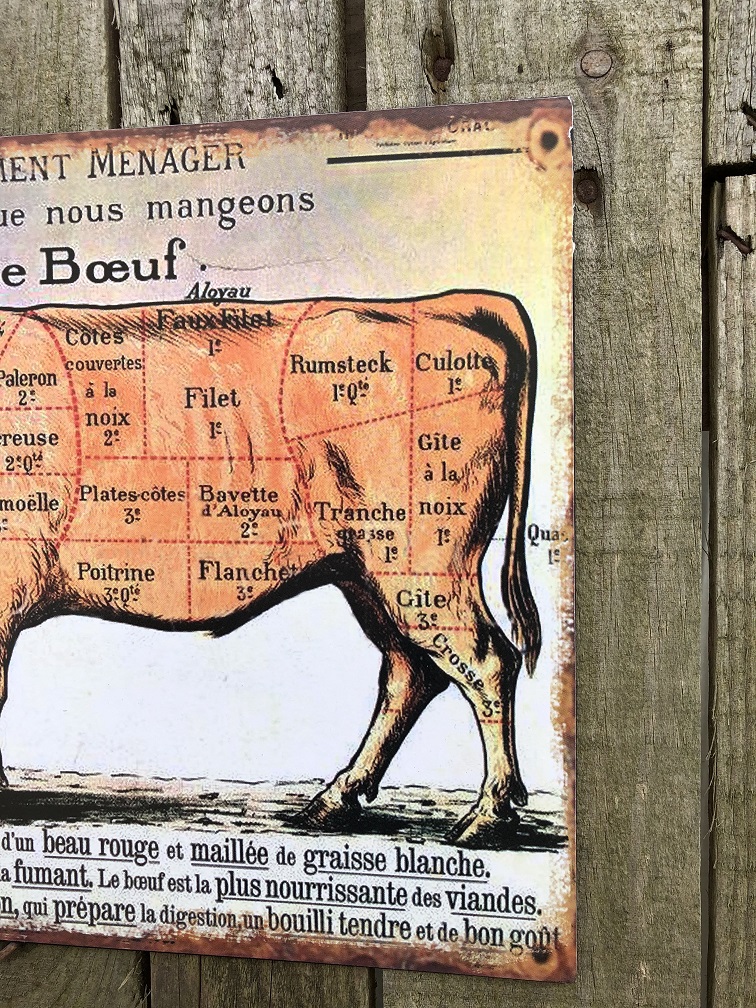 MENAGER
nous mangeons
Bœuf.
Aloyau
Faux Filet
1e
Côtes
couvertes
à la
noix
2e
Filet
1e
Rumsteck
1e Qté
Culotte
1e
Paleron
2e
2e Qté
Plates-côtes
3e
Bavette
d'Aloyau
2e
Tranche
grasse
1e
Gîte
à la
noix
1e
Poitrine
3e Qté
Flanchet
3e
Gîte
3e
Crosse
3e
1e
d'un beau rouge et maillée de graisse blanche.
fumant. Le bœuf est la plus nourrissante des viandes.
qui prépare la digestion, un bouilli tendre et de bon goût